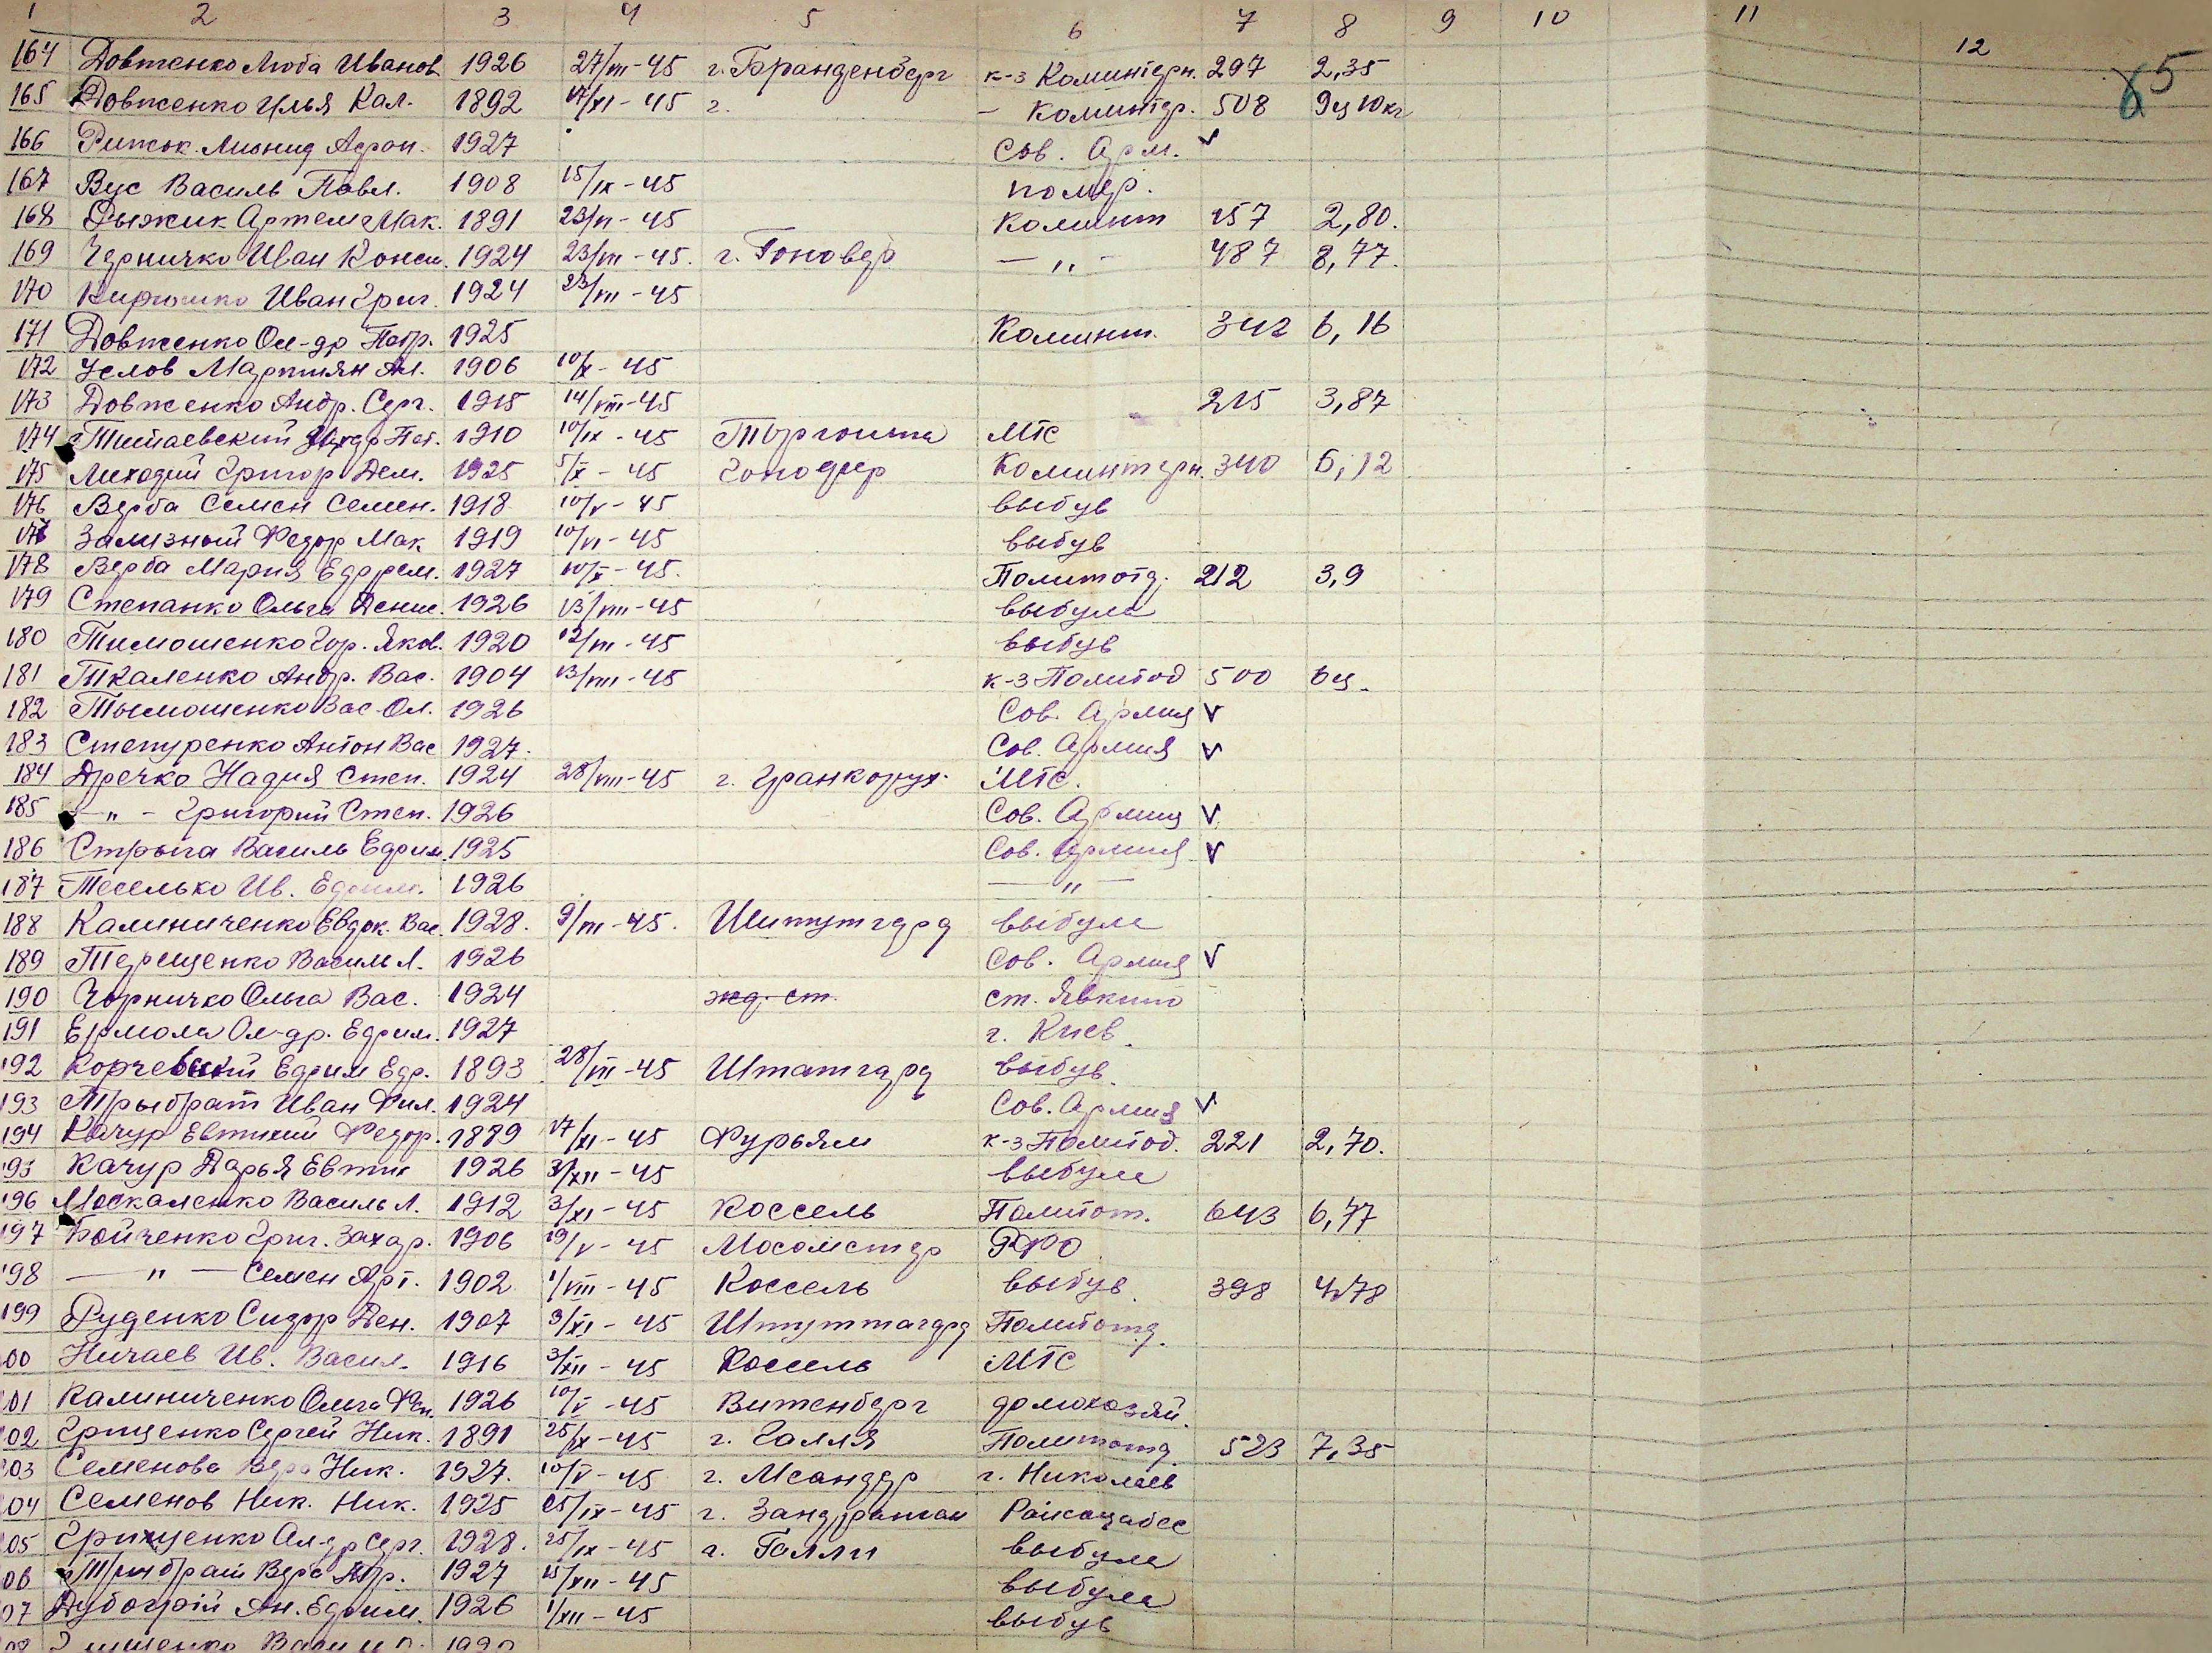 1 2 3 4 5 6 7 8 9 10 11 12
85
164 Довженко Люба Иванов. 1926 27/III-45 г. Бранденберг к-з Коминтерн. 297 2,35
165 Довженко Илья Кал. 1892 17/XI-45 г. - Коминтер. 508 9ц 10кг
166 Рижок 1927 Сов. Арм. v
167 Вус Василь Павл. 1908 15/IX-45 помер.
168 Рыжик Артем Мак. 1891 23/VI-45 Коминт 157 2,80.
169 Черничко Иван Конст. 1924 23/VIII-45. г. Гановер - " - 487 8,77.
170 Кирюшко Иван Григ. 1924 23/VII-45
171 Довженко Ол-др Петр. 1925 Коминт. 342 6,16
172 Услов Мартиян Ал. 1906 10/X-45
173 Довженко Андр. Серг. 1915 14/VIII-45 215 3,87
174 Пет. 1910 10/IX-45 МТС
175 Лиходий Григор Дем. 1925 5/X-45 Коминтерн. 340 6,12
176 Верба Семен Семен. 1918 10/V-45 выбув
177 Зализный Федор Мак 1919 10/VI-45 выбув
178 Верба Мария Ефрем. 1927 10/X-45. Политотд. 212 3,9
179 Степанко Ольга Дение. 1926 13/VIII-45 выбула
180 Тимошенко Гор. Яков. 1920 12/III-45 выбув
181 Ткаленко Андр. Вас. 1904 13/VIII-45 к-з Политод 500 6ц.
182 Тымошенко Вас. Ол. 1926 Сов. Армия v
183 Степуренко Антон Вас 1927. Сов. Армия v
184 Дречко Надия Степ. 1924 28/VIII-45 г. Франкфурт. МТС.
185 - " - Григорий Степ. 1926 Сов. Армия v
186 Стрыга Василь Ефрим. 1925 Сов. Армия v
187 Теселько Ив. Ефрим. 1926 - " -
188 Калиниченко Евдок. Вас. 1928. 9/III-45. Штутгард выбула
189 Терещенко Василь Л. 1926 Сов. Армия v
190 Чорничко Ольга Вас. 1924 жд. ст. ст. Явкино
191 Ермола Ол-др. Ефрим. 1927 г. Киев
192 Корчевский Ефрим Ефр. 1893 28/VII-45 Штатгард выбув
193 Трыбрат Иван Фил. 1924 Сов. Армия v
194 Качур Евтихий Федор. 1889 17/XI-45 Фурьям к-з Политод. 221 2,70.
195 Качур Дарья Евтих 1926 3/XII-45 выбула
196 Москаленко Василь Л. 1912 3/XI-45 Коссель Политот. 643 6,77
197 Бойченко Григ. Захар. 1906 19/V-45 РФО
198 - " - Семен Арт. 1902 1/VIII-45 Коссель выбув 398 4,78
199 Руденко Сидор Ден. 1907 3/XI-45 Штуттагард Политотд.
00 Ничаев Ив. Васил. 1916 3/XII-45 Коссель МТС
01 Калиниченко Ольга 1926 10/V-45 Витенберг домохозяй.
02 Грищенко Сергей Ник. 1891 25/IX-45 г. Галля Политотд. 523 7,35
03 Семенова Вера Ник. 1927. 10/V-45 г. г. Николаев
04 Семенов Ник. Ник. 1925 25/IX-45 г. Райсобес
05 Грищенко Ол-др Серг. 1928. 25/IX-45 г. Галли выбула
06 Трибрат Вера 1927 15/XII-45 выбула
07 Дубогрій Ан. Ефрим. 1926 1/XII-45 выбув